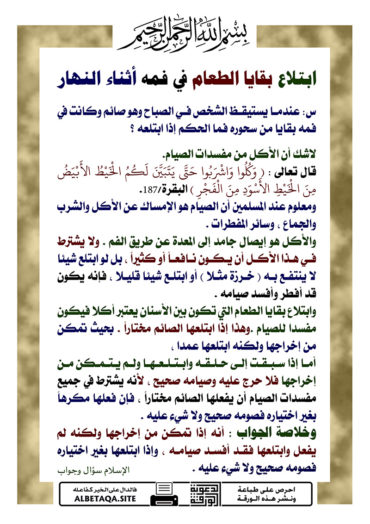 بسم الله الرحمن الرحيم
ابتلاع بقايا الطعام في فمه أثناء النهار
س: عندمـا يستيقـظ الشخص فـي الصباح وهو صائم وكانت في
فمه بقايا من سحوره فما الحكم إذا ابتلعه ؟
لاشك أن الأكل من مفسدات الصيام.
قال تعالى : ( وَكُلُوا وَاشْرَبُوا حَتَّى يَتَبَيَّنَ لَكُمُ الْخَيْطُ الأَبْيَضُ
مِنَ الْخَيْطِ الأَسْوَدِ مِنَ الْفَجْرِ ) البقرة/187.
ومعلوم عند المسلمين أن الصيام هو الإمساك عن الأكل والشرب
والجماع ، وسائر المفطرات .
والأكل هو إيصال جامد إلى المعدة عن طريق الفم . ولا يشترط
فـي هـذا الأكـل أن يـكـون نـافعـا أو كثيراً ، بل لو ابتلع شيئا
لا ينتفـع بـه ( خـرزة مثـلا ) أو ابتلـع شيئا قليـلا ، فإنه يكون
قد أفطر وأفسد صيامه .
وابتلاع بقايا الطعام التي تكون بين الأسنان يعتبر أكلا فيكون
مفسدا للصيام .وهذا إذا ابتلعها الصائم مختاراً . بحيث تمكن
من إخراجها ولكنه ابتلعها عمدا ،
أمـا إذا سبـقـت إلـى حـلـقـه وابـتـلـعـهـا ولـم يـتـمـكـن مـن
إخراجها فلا حرج عليه وصيامه صحيح ، لأنه يشترط في جميع
مفسدات الصيام أن يفعلها الصائم مختاراً ، فإن فعلها مكرهاً
بغير اختياره فصومه صحيح ولا شيء عليه .
وخلاصة الجواب : أنه إذا تمكن من إخراجها ولكنه لم
يفعل وابتلعها فقـد أفسـد صيامـه ، وإذا ابتلعها بغير اختياره
فصومه صحيح ولا شيء عليه .
الإسلام سؤال وجواب
احرص على طباعة
ونشر هذه الورقة
الدعوية
فالدال على الخير كفاعله
ALBETAQA.SITE